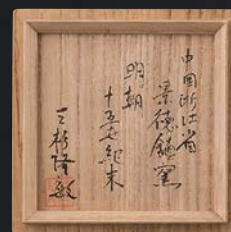 中国浙江省
景徳鎮窯
明朝
十五世紀末
三杉隆敏